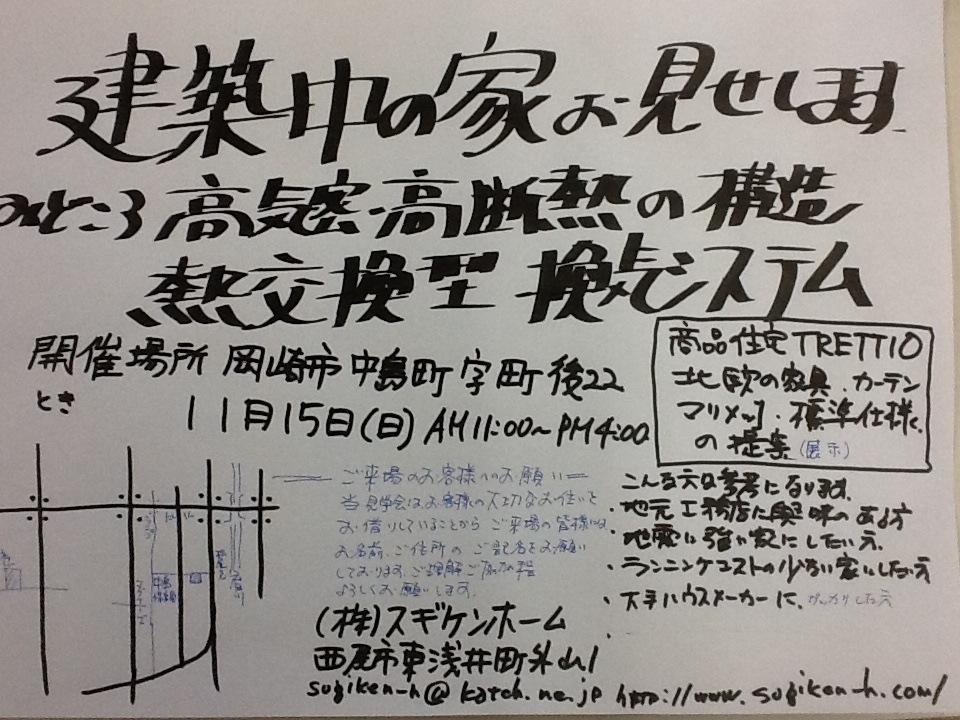 建築中の家お見せします
みどころ 高気密・高断熱の構造
熱交換型 換気システム
開催場所 岡崎市中島町字町後22
とき 11月15日(日) AM11:00~PM4:00
商品住宅TRETTIO
北欧の家具.カーテン
マリメッコ・標準仕様
の提案(展示)
ご来場のお客様へのお願い
当見学会はお客様の大切なお住いを
お借りしていることから ご来場の皆様は
お名前、ご住所の ご記名をお願い
しております。ご理解ご協力の程
よろしくお願いします。
こんな方は参考になります。
・地元工務店に興味のある方
・地震に強い家にしたい方
・ランニングコストの少ない家にしたい方
・大手ハウスメーカーに、がっかりした方
中島
(株)スギケンホーム
西尾市東浅井町外山1
sugiken-h@katch.ne.jp http://www.sugiken-h.com/